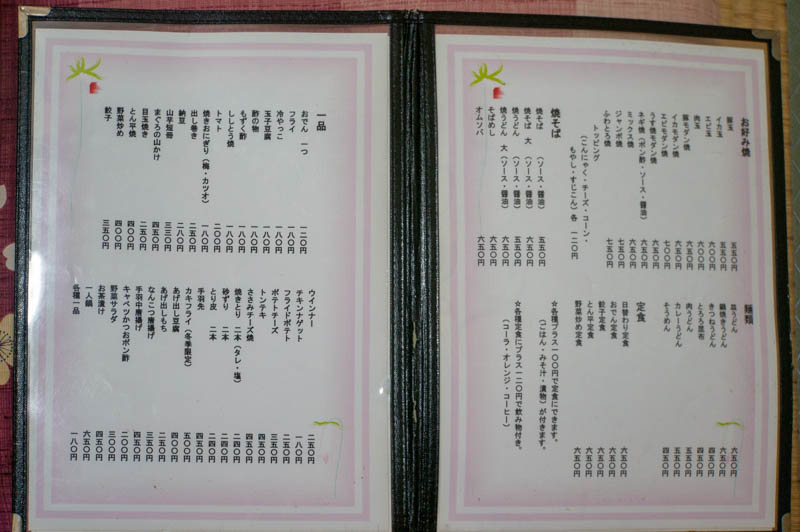 お好み焼
豚玉 五五〇円
イカ玉 五五〇円
エビ玉 六〇〇円
肉玉 六〇〇円
豚モダン焼 六五〇円
イカモダン焼 六五〇円
エビモダン焼 七〇〇円
うす焼モダン焼 六五〇円
ネギ焼(ポン酢・ソース・醤油) 六五〇円
ミックス焼 七五〇円
ジャンボ焼 七五〇円
ふわとろ焼 七五〇円
トッピング
(こんにゃく・チーズ・コーン・
もやし・すじこん)各 一二〇円
焼そば
焼そば (ソース・醤油) 五五〇円
焼そば 大 (ソース・醤油) 六五〇円
焼うどん (ソース・醤油) 五五〇円
焼うどん 大 (ソース・醤油) 六五〇円
そばめし 六五〇円
オムソバ 六五〇円
麺類
皿うどん 六五〇円
鍋焼きうどん 六五〇円
きつねうどん 四五〇円
とろろ昆布 四五〇円
肉うどん 五五〇円
カレーうどん 五五〇円
そうめん 四五〇円
定食
日替わり定食 六五〇円
おでん定食 六五〇円
餃子定食 六五〇円
とん平定食 六五〇円
野菜炒め定食 六五〇円
☆各種プラス一〇〇円で定食にできます。
(ごはん・みそ汁・漬物)が付きます。
☆各種定食にプラス一二〇円で飲み物付き。
(コーラ・オレンジ・コーヒー)
一品
おでん 一つ 一二〇円
フライ 一八〇円
冷やっこ 一八〇円
玉子豆腐 一八〇円
酢の物 一八〇円
もずく酢 一八〇円
ししとう焼 一八〇円
トマト 二〇〇円
焼きおにぎり(梅・カツオ) 一八〇円
出し巻き 二五〇円
納豆 一八〇円
山芋短冊 三三〇円
まぐろの山かけ 四五〇円
目玉焼き 二五〇円
とん平焼 四〇〇円
野菜炒め 四〇〇円
餃子 三五〇円
ウインナー 二五〇円
チキンナゲット 一八〇円
フライドポテト 二五〇円
ポテトチーズ 三五〇円
トンテキ 四五〇円
ささみチーズ焼 四五〇円
焼きとり 二本(タレ・塩) 二四〇円
砂ずり 二本 二四〇円
とり皮 二本 二四〇円
手羽先 四五〇円
カキフライ(冬季限定) 五〇〇円
あげ出し豆腐 四〇〇円
あげ出しもち 二五〇円
なんこつ唐揚げ 三五〇円
手羽中唐揚げ 四五〇円
キャベツかつおポン酢 二〇〇円
野菜サラダ 四五〇円
お茶漬け 四五〇円
一人鍋 六五〇円
各種一品 一八〇円